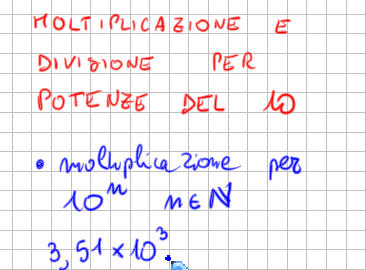 MOLTIPLICAZIONE E
DIVISIONE PER
POTENZE DEL 10
• moltiplicazione per
10ⁿ n∈ℕ
3,51×10³